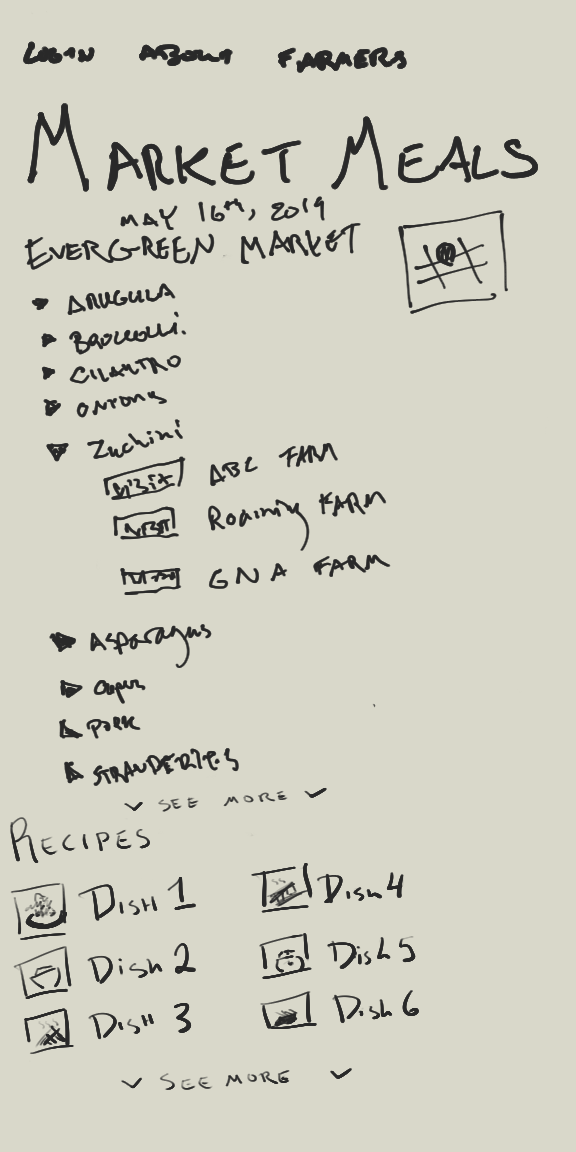 LOGIN ABOUT FARMERS
MARKET MEALS
MAY 16th, 2019
EVERGREEN MARKET
ARUGULA
BROCCOLLI.
CILANTRO
ONIONS
Zuchini
VISIT ABC FARM
VISIT Roaming FARM
VISIT GNA FARM
Asparagus
PORK
SEE MORE
RECIPES
DISH 1 Dish 4
Dish 2 Dish 5
Dish 3 Dish 6
SEE MORE